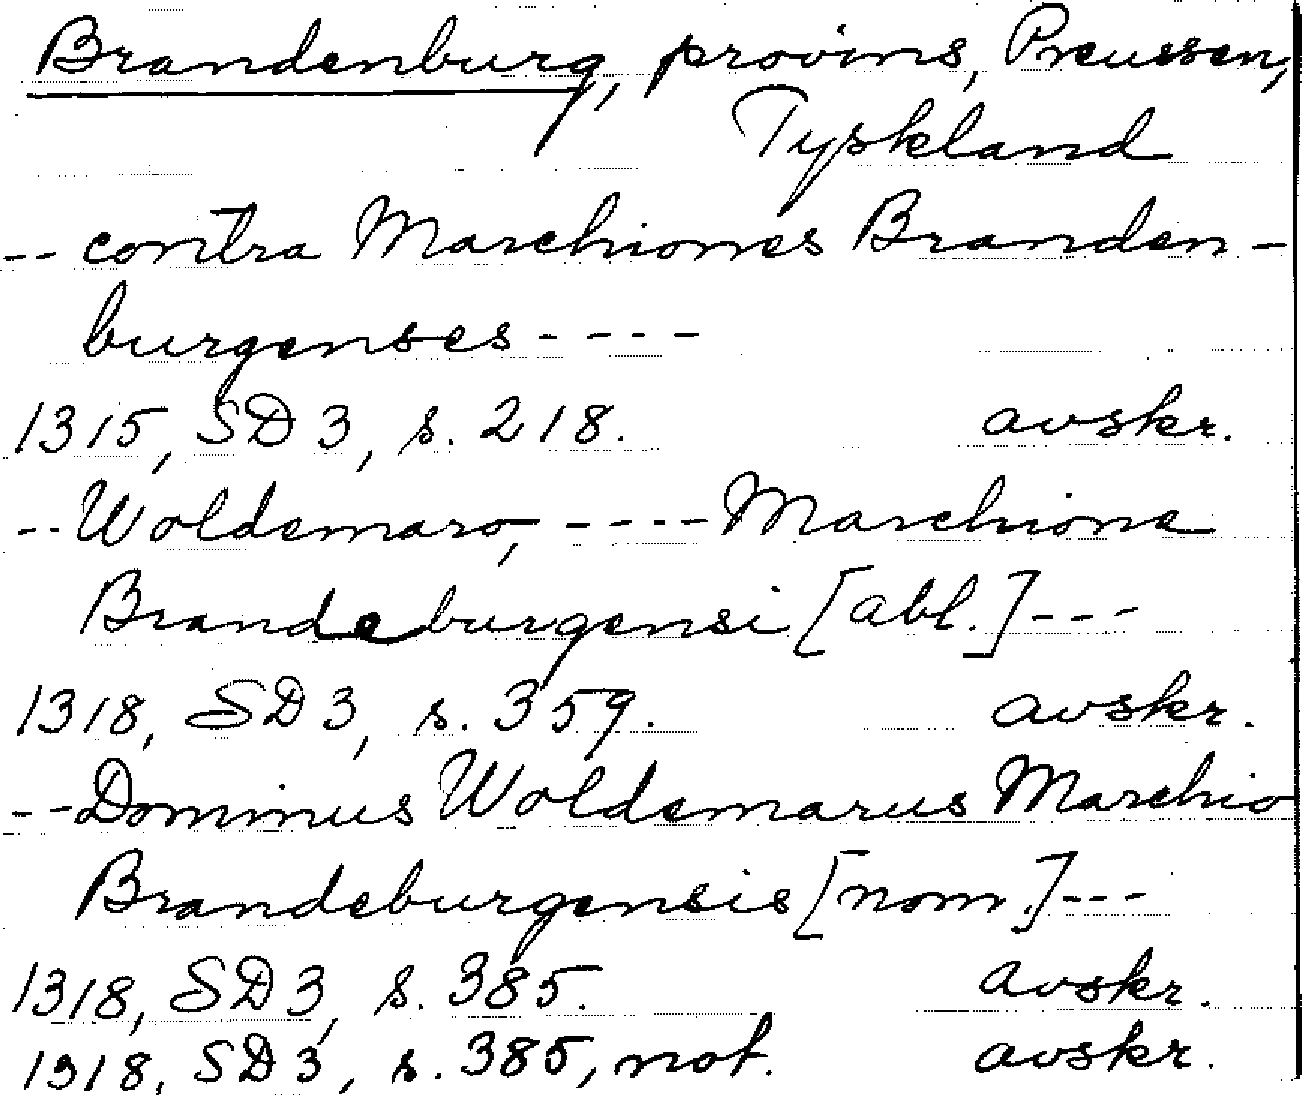 Brandenburg, provins, Preussen,
Tyskland
-- contra Marchiones Branden-
burgenses ----
1315, SD 3, s. 218. avskr.
-- Woldemaro, ---- Marchione
Brandeburgensi [abl.] ---
1318, SD 3, s. 359. avskr.
-- Dominus Woldemarus Marchio
Brandeburgensis [nom.] ---
1318, SD 3, s. 385. avskr.
1318, SD 3, s. 385, not. avskr.